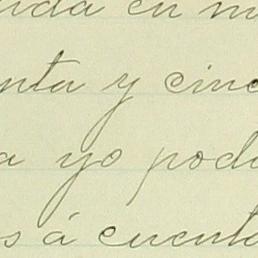 ida en m
nta y cinc
a yo pod
s á cuenta